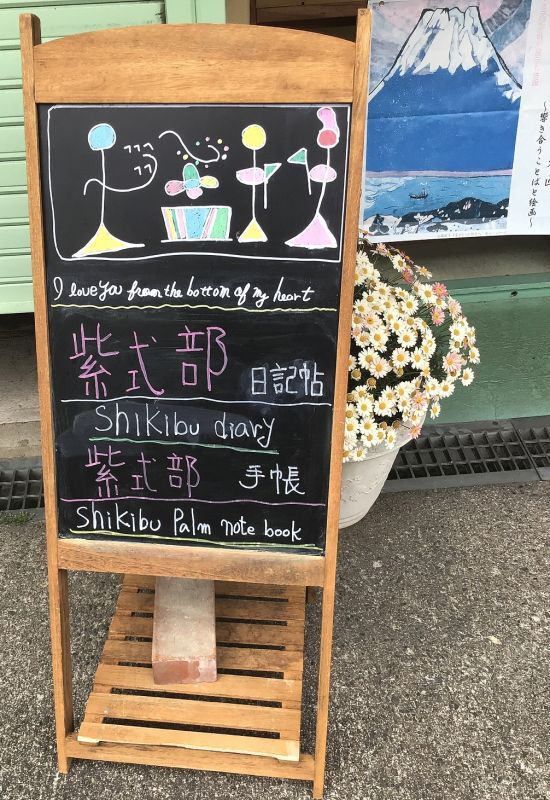 I love you from the bottom of my heart
紫式部 日記帖
Shikibu diary
紫式部 手帳
Shikibu Palm note book
〜響き合うことばと絵画〜